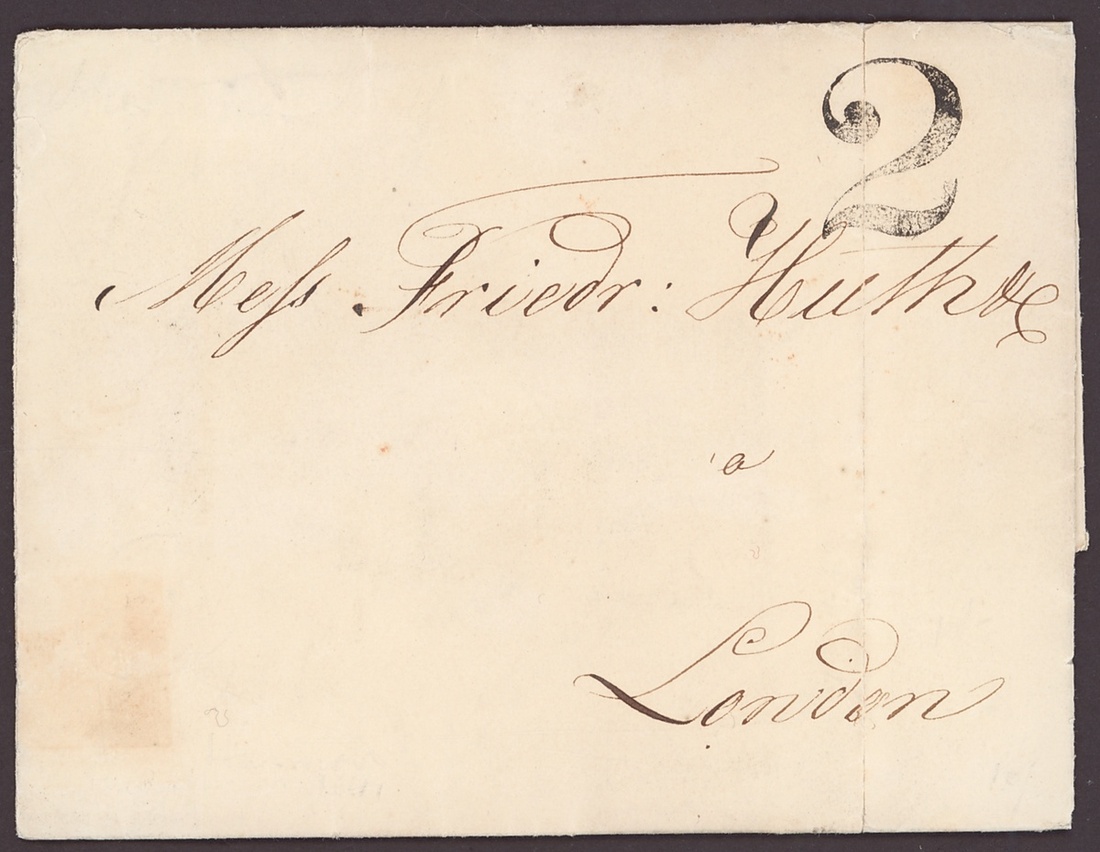 2
Mess. Friedr: Huth & C
a
London